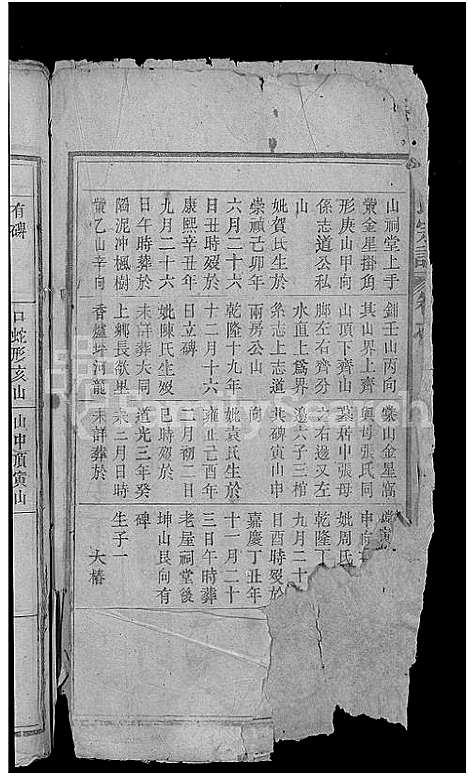 山祠堂上手
黄金星掛角
形庚山甲向
係志道公私
山
妣賀氏生於
崇禎己卯年
六月二十六
日丑時歿於
康熙辛丑年
九月二十六
日午時葬於
隔泥冲楓樹
黨乙山辛向
鉗壬山丙向
其山界上齊
山頂下齊山
脚左右齊分
水直上爲界
係志上志道
兩房公山
乾隆十九年
十二月十六
日立碑
妣陳氏生歿
未詳葬大同
上鄉長欲里
香爐坪河龍
棠山金星窩
與母張氏同
冢居中張母
之右邊又左
邊六子三棺
共碑寅山申
向
妣袁氏生於
雍正己酉年
二月初二日
巳時歿於
道光三年癸
未二月日時
未詳葬於
申向
妣周氏
乾隆丁
九月二十
日酉時歿於
嘉慶丁丑年
十一月二十
三日午時葬
老屋祠堂後
坤山艮向有
碑
生子一
大椿
有碑
口蛇形亥山
山中頂寅山